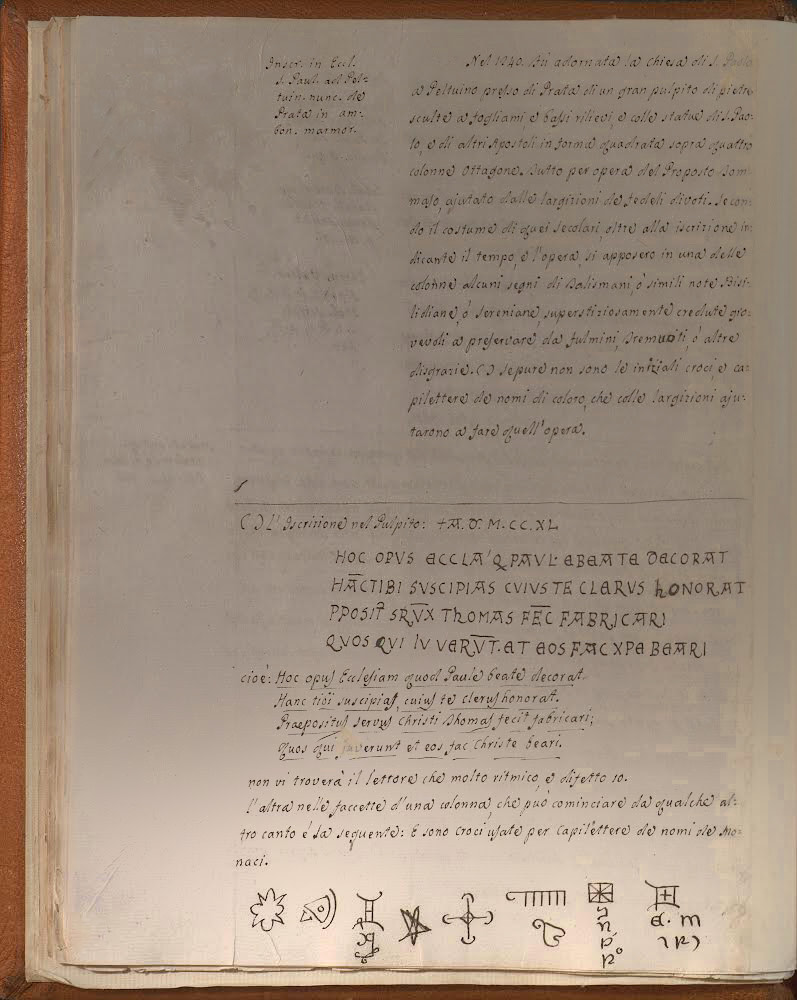 Inscr. in Eccl.
S. Paul. ad Pel=
tuin. nunc. de
Prata in am=
bon. marmor.
Nel 1240. fù adornata la Chiesa di S. Paolo
a Peltuino presso di Prata di un gran pulpito di pietre
sculte a fogliami e bassi rilievi, e colle statue di S. Pao=
lo, e di altri Apostoli in forma quadrata sopra quattro
colonne ottagone. Tutto per opera del Proposto Tom=
maso, ajutato dalle largizioni de fedeli divoti. Secon=
do il costume di quei secolari, oltre alla iscrizione in=
dicante il tempo, e l'opera, si apposero in una delle
colonne alcuni segni di Talismani, ò simili note Basi=
lidiane, ò Sereniane, superstiziosamente credute gio=
vevoli a preservare da fulmini, tremuoti, ò altre
disgrazie. ( ) Sepure non sono le iniziali croci, e ca=
pilettere de nomi di coloro, che colle largizioni aju=
tarono a fare quell'opera.
( ) L'Iscrizione nel Pulpito: +A.D. M.CC.XL
HOC OPVS ECCLA' Q PAVL' EBEATE DECORAT
HACTIBI SUSCIPIAS CVIVS TE CLERVS HONORAT
PPOSIT SRVX THOMAS FEC FABRICARI
QVOS QVI IV VERVT. ET EOS FAC XPE BEARI
cioè: Hoc opus Ecclesiam quod Paule beate decorat
Hanc tibi suscipias, cuius te clerus honorat.
Praepositus servus Christi Thomas fecit fabricari;
quos qui juverunt et eos fac Christe beari.
non vi troverà il lettore che molto ritmico, e difetto so.
l'altra nelle faccette d'una colonna, che può cominciare da qualche al=
tro canto é la seguente: E sono Croci usate per Capilettere de nomi de Mo=
naci.